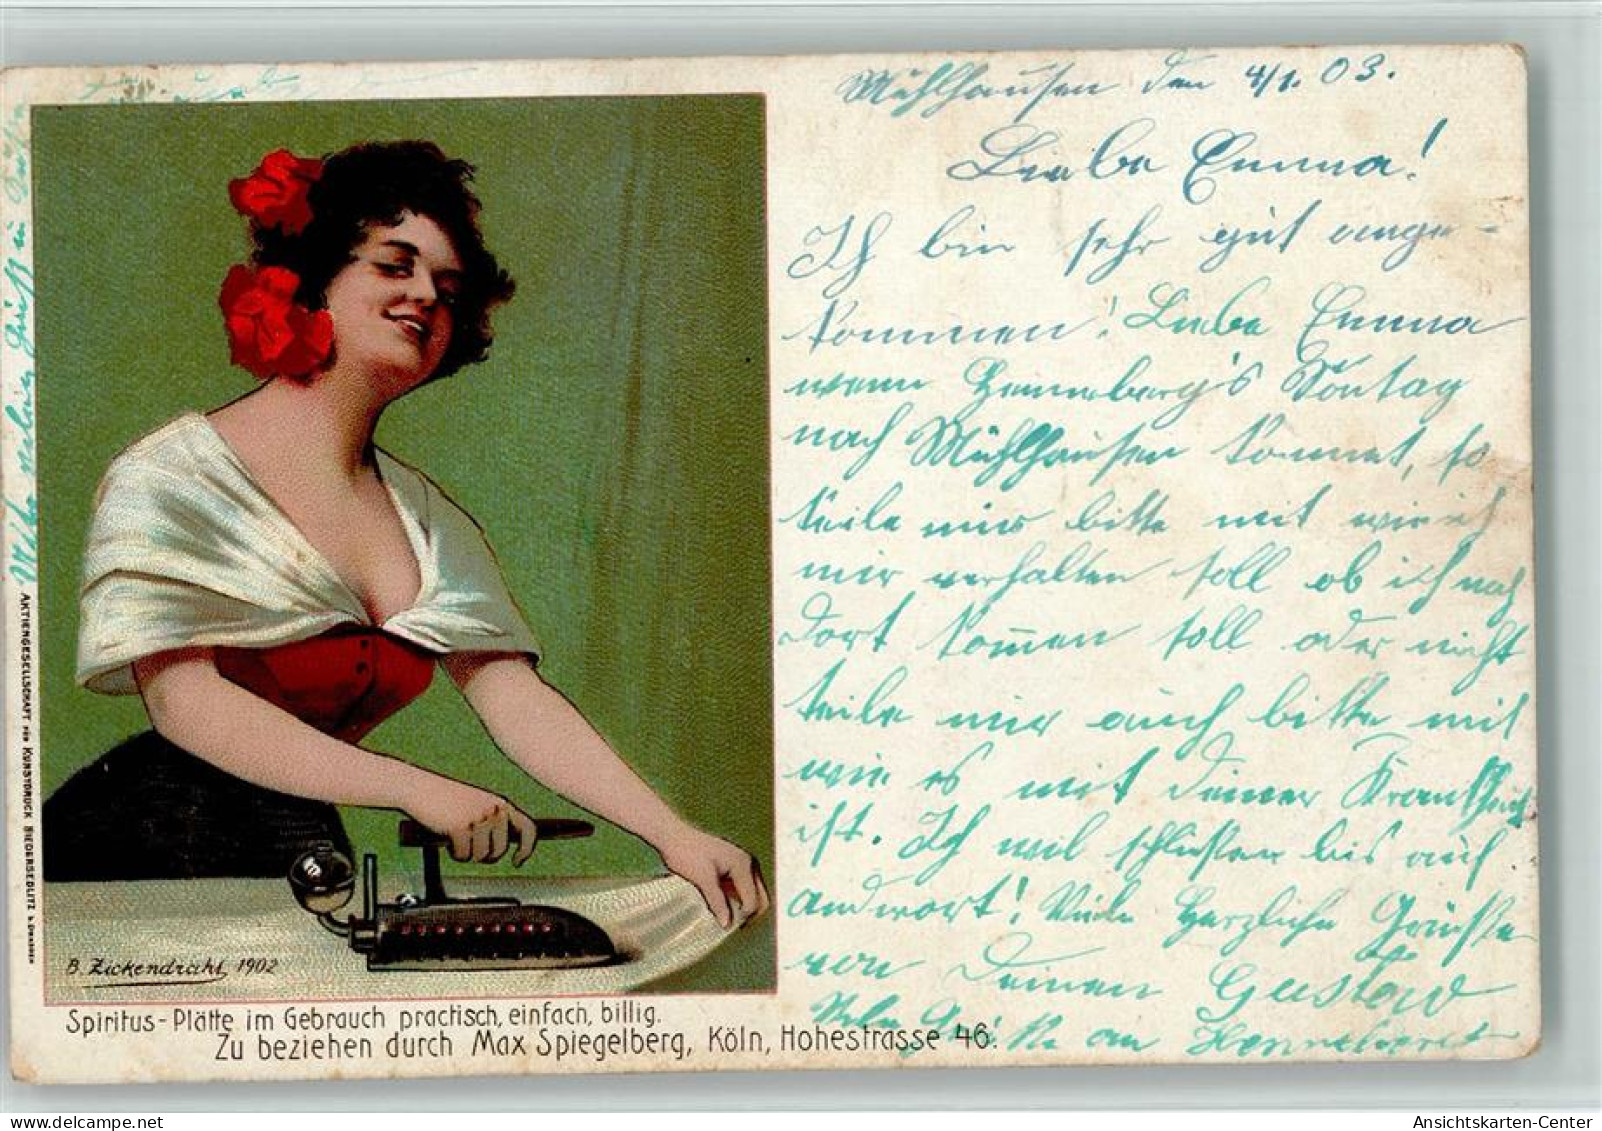 Mühlhausen den 4/1. 03.
Liebe Emma!
Ich bin sehr gut ange-
kommen! Liebe Emma
wenn Henneberg's Sontag
nach Mühlhausen kommt, so
teile mir bitte mit wie ich
mir verhalten soll ob ich nach
dort kommen soll oder nicht
teile mir auch bitte mit
wie es mit deiner Krankheit
ist. Ich wil schließen bis auf
andwort! Viele Herzliche Grüße
von Deinem Gustav
Viele Grüße an Henneberg
AKTIENGESELLSCHAFT FÜR KUNSTDRUCK NIEDERSEDLITZ b. DRESDEN
B. Zickendraht, 1902
Spiritus-Plätte im Gebrauch practisch, einfach, billig.
Zu beziehen durch Max Spiegelberg, Köln, Hohestrasse 46.
Ansichtskarten-Center